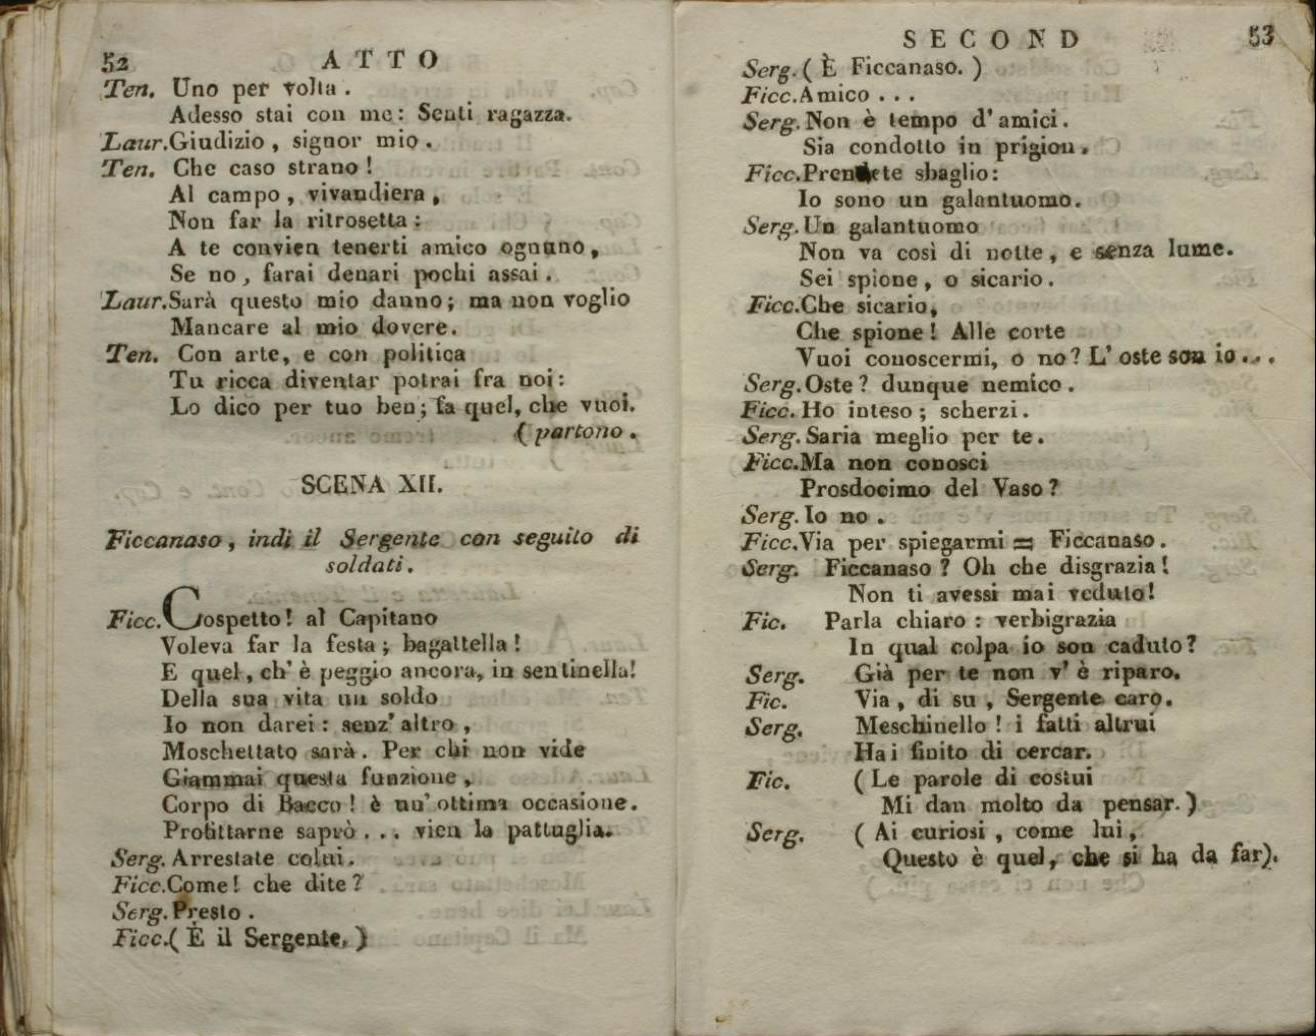 52 ATTO
Ten. Uno per volta .
Adesso stai con me: Senti ragazza.
Laur. Giudizio , signor mio .
Ten. Che caso strano !
Al campo , vivandiera ,
Non far la ritrosetta :
A te convien tenerti amico ognuno ,
Se no , farai denari pochi assai .
Laur. Sarà questo mio danno ; ma non voglio
Mancare al mio dovere .
Ten. Con arte, e con politica
Tu ricca diventar potrai fra noi :
Lo dico per tuo ben ; fa quel, che vuoi.
( partono .
SCENA XII.
Ficcanaso , indi il Sergente con seguito di
soldati .
Ficc. Cospetto ! al Capitano
Voleva far la festa ; bagattella !
E quel , ch' è peggio ancora, in sentinella!
Della sua vita un soldo
Io non darei : senz' altro ,
Moschettato sarà . Per chi non vide
Giammai questa funzione ,
Corpo di Bacco ! è un' ottima occasione .
Profittarne saprò . . . vien la pattuglia.
Serg. Arrestate colui .
Ficc. Come ! che dite ?
Serg. Presto .
Ficc. ( È il Sergente. )
SECOND 53
Serg. ( È Ficcanaso. )
Ficc. Amico . . .
Serg. Non è tempo d' amici .
Sia condotto in prigion .
Ficc. Prendete sbaglio :
Io sono un galantuomo .
Serg. Un galantuomo
Non va così di notte , e senza lume .
Sei spione , o sicario .
Ficc. Che sicario,
Che spione ! Alle corte
Vuoi conoscermi, o no ? L' oste son io . . .
Serg. Oste ? dunque nemico .
Ficc. Ho inteso ; scherzi .
Serg. Saria meglio per te .
Ficc. Ma non conosci
Prosdocimo del Vaso ?
Serg. Io no .
Ficc. Via per spiegarmi = Ficcanaso .
Serg. Ficcanaso ? Oh che disgrazia !
Non ti avessi mai veduto!
Fic. Parla chiaro : verbigrazia
In qual colpa io son caduto ?
Serg. Già per te non v' è riparo.
Fic. Via , di su , Sergente caro.
Serg. Meschinello ! i fatti altrui
Hai finito di cercar.
Fic. ( Le parole di costui
Mi dan molto da pensar. )
Serg. ( Ai curiosi , come lui ,
Questo è quel, che si ha da far).